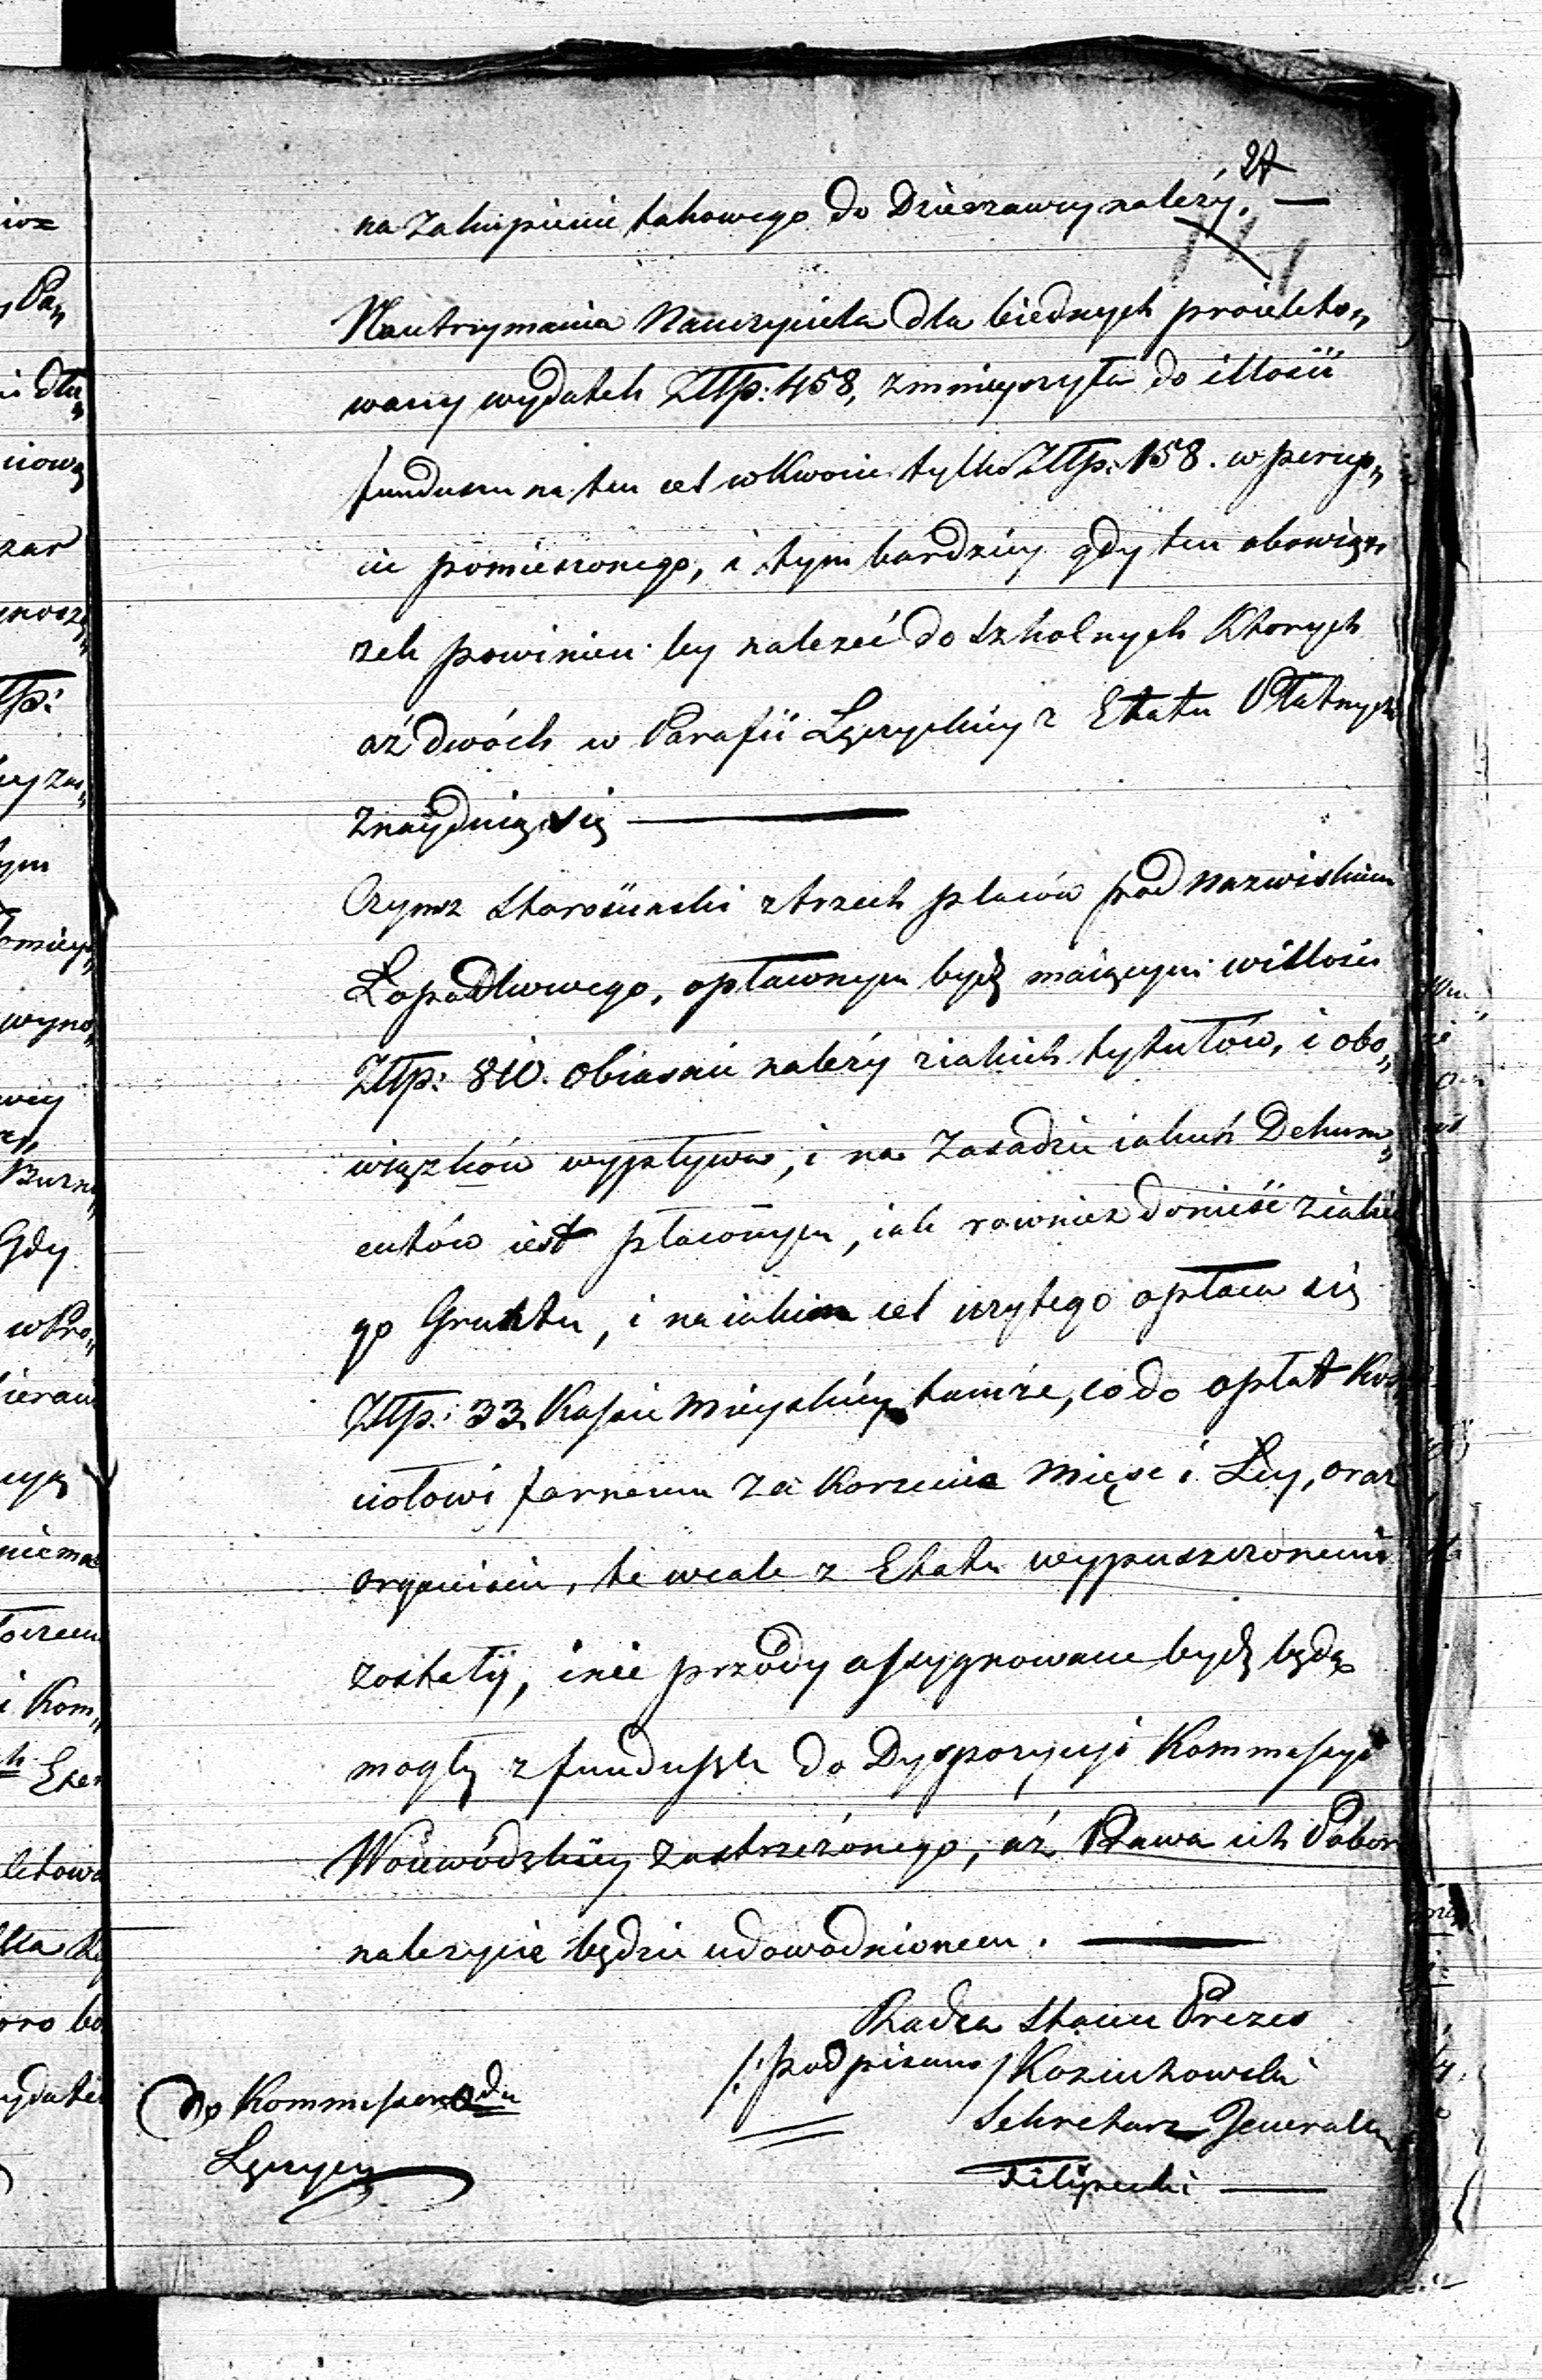 27
na zakupienie takowego do Dzierzawcy należy. —
Na utrzymania Nauczyciela dla biednych proiekto„
wany wydatek Złłp: 458, zmnieyszyła do illości
funduszu na ten cel w Kwocie tylko Złłp: 158. w percep„
cie pomieszczonego, i tym bardziey gdy ten obowią„
zek powinien by należeć do szkolnych Ktorych
aż dwóch w Parafii Łęczyckiey z Etatu Płatnych
znayduią się —
Czynsz Starościński z trzech placów pod Nazwiskiem
Łopadkowego, opłacanym bydź maiącym w illości
Złłp: 810. obiasnić należy z iakich tytułów, i obo„
wiązków wypływa, i na Zasadzie iakich Dokum„
entów iest płaconym, iak rownież donieść z iakie
go Gruntu, i na iakim cel czytego opłaca się
Złłp: 33 Kassie Mieyskiey tamże, co do opłat Koś
ciołowi farnemu za Korzenie Mięsc i Łey, oraz
organiście, te wcale z Etatu wypuszczonemi
zostały, i nie przódy assygnowane bydź będą
mogły z funduszu do Dyspozycyi Kommissyi
Woiewódzkiey zastrzeżonego, aż Prawa ich Pobor
należycie będzie udowodnionem. —
Radca Stanu Prezes
/: podpisano / Koziutowski
Sekretarz Jeneralny
Filipecki —
Do Kommissarza
Łęczycy